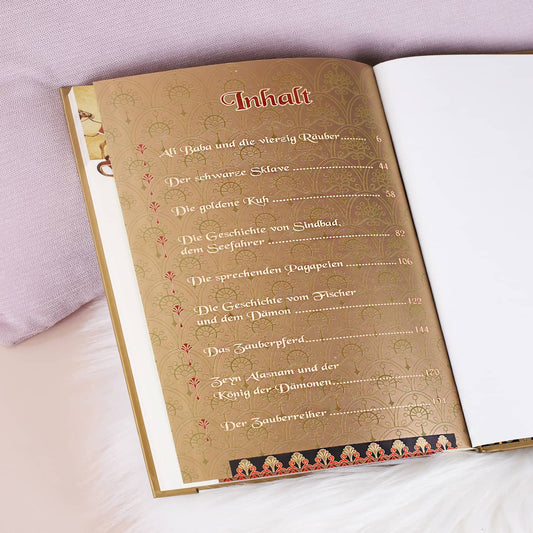 Inhalt
Ali Baba und die vierzig Räuber.......... 6
Der schwarze Sklave ......................... 44
Die goldene Kuh ................................. 58
Die Geschichte von Sindbad,
dem Seefahrer ................................ 82
Die sprechenden Papageien ............... 106
Die Geschichte vom Fischer
und dem Dämon ............................... 122
Das Zauberpferd ................................ 144
Zeyn Alasnam und der
König der Dämonen......................... 170
Der Zauberreiher .............................